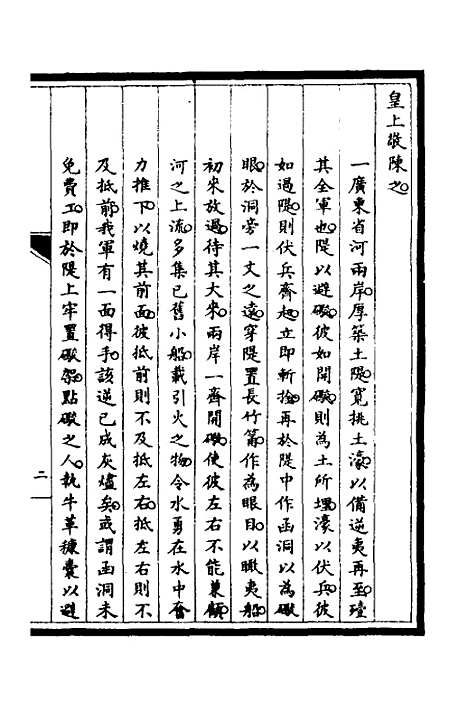 皇上敬陳之
一廣東省河兩岸厚築土隄寬挑土濠以備逆夷再至殪
其全軍也隄以避礮彼如開礮則為土所埋濠以伏兵彼
如過隄則伏兵齊起立即斬搶再於隄中作函洞以為礮
眼於洞旁一丈之遠穿隄置長竹筩作為眼目以瞰夷船
初來放過待其大來兩岸一齊開礮使彼左右不能兼顧
河之上流多集已舊小船載引火之物令水勇在水中奮
力推下以燒其前面彼抵前則不及抵左右抵左右則不
及抵前我軍有一面得手該逆已成灰燼矣或謂函洞未
免費工即於隄上牢置礮架點礮之人執牛革糠囊以避
二